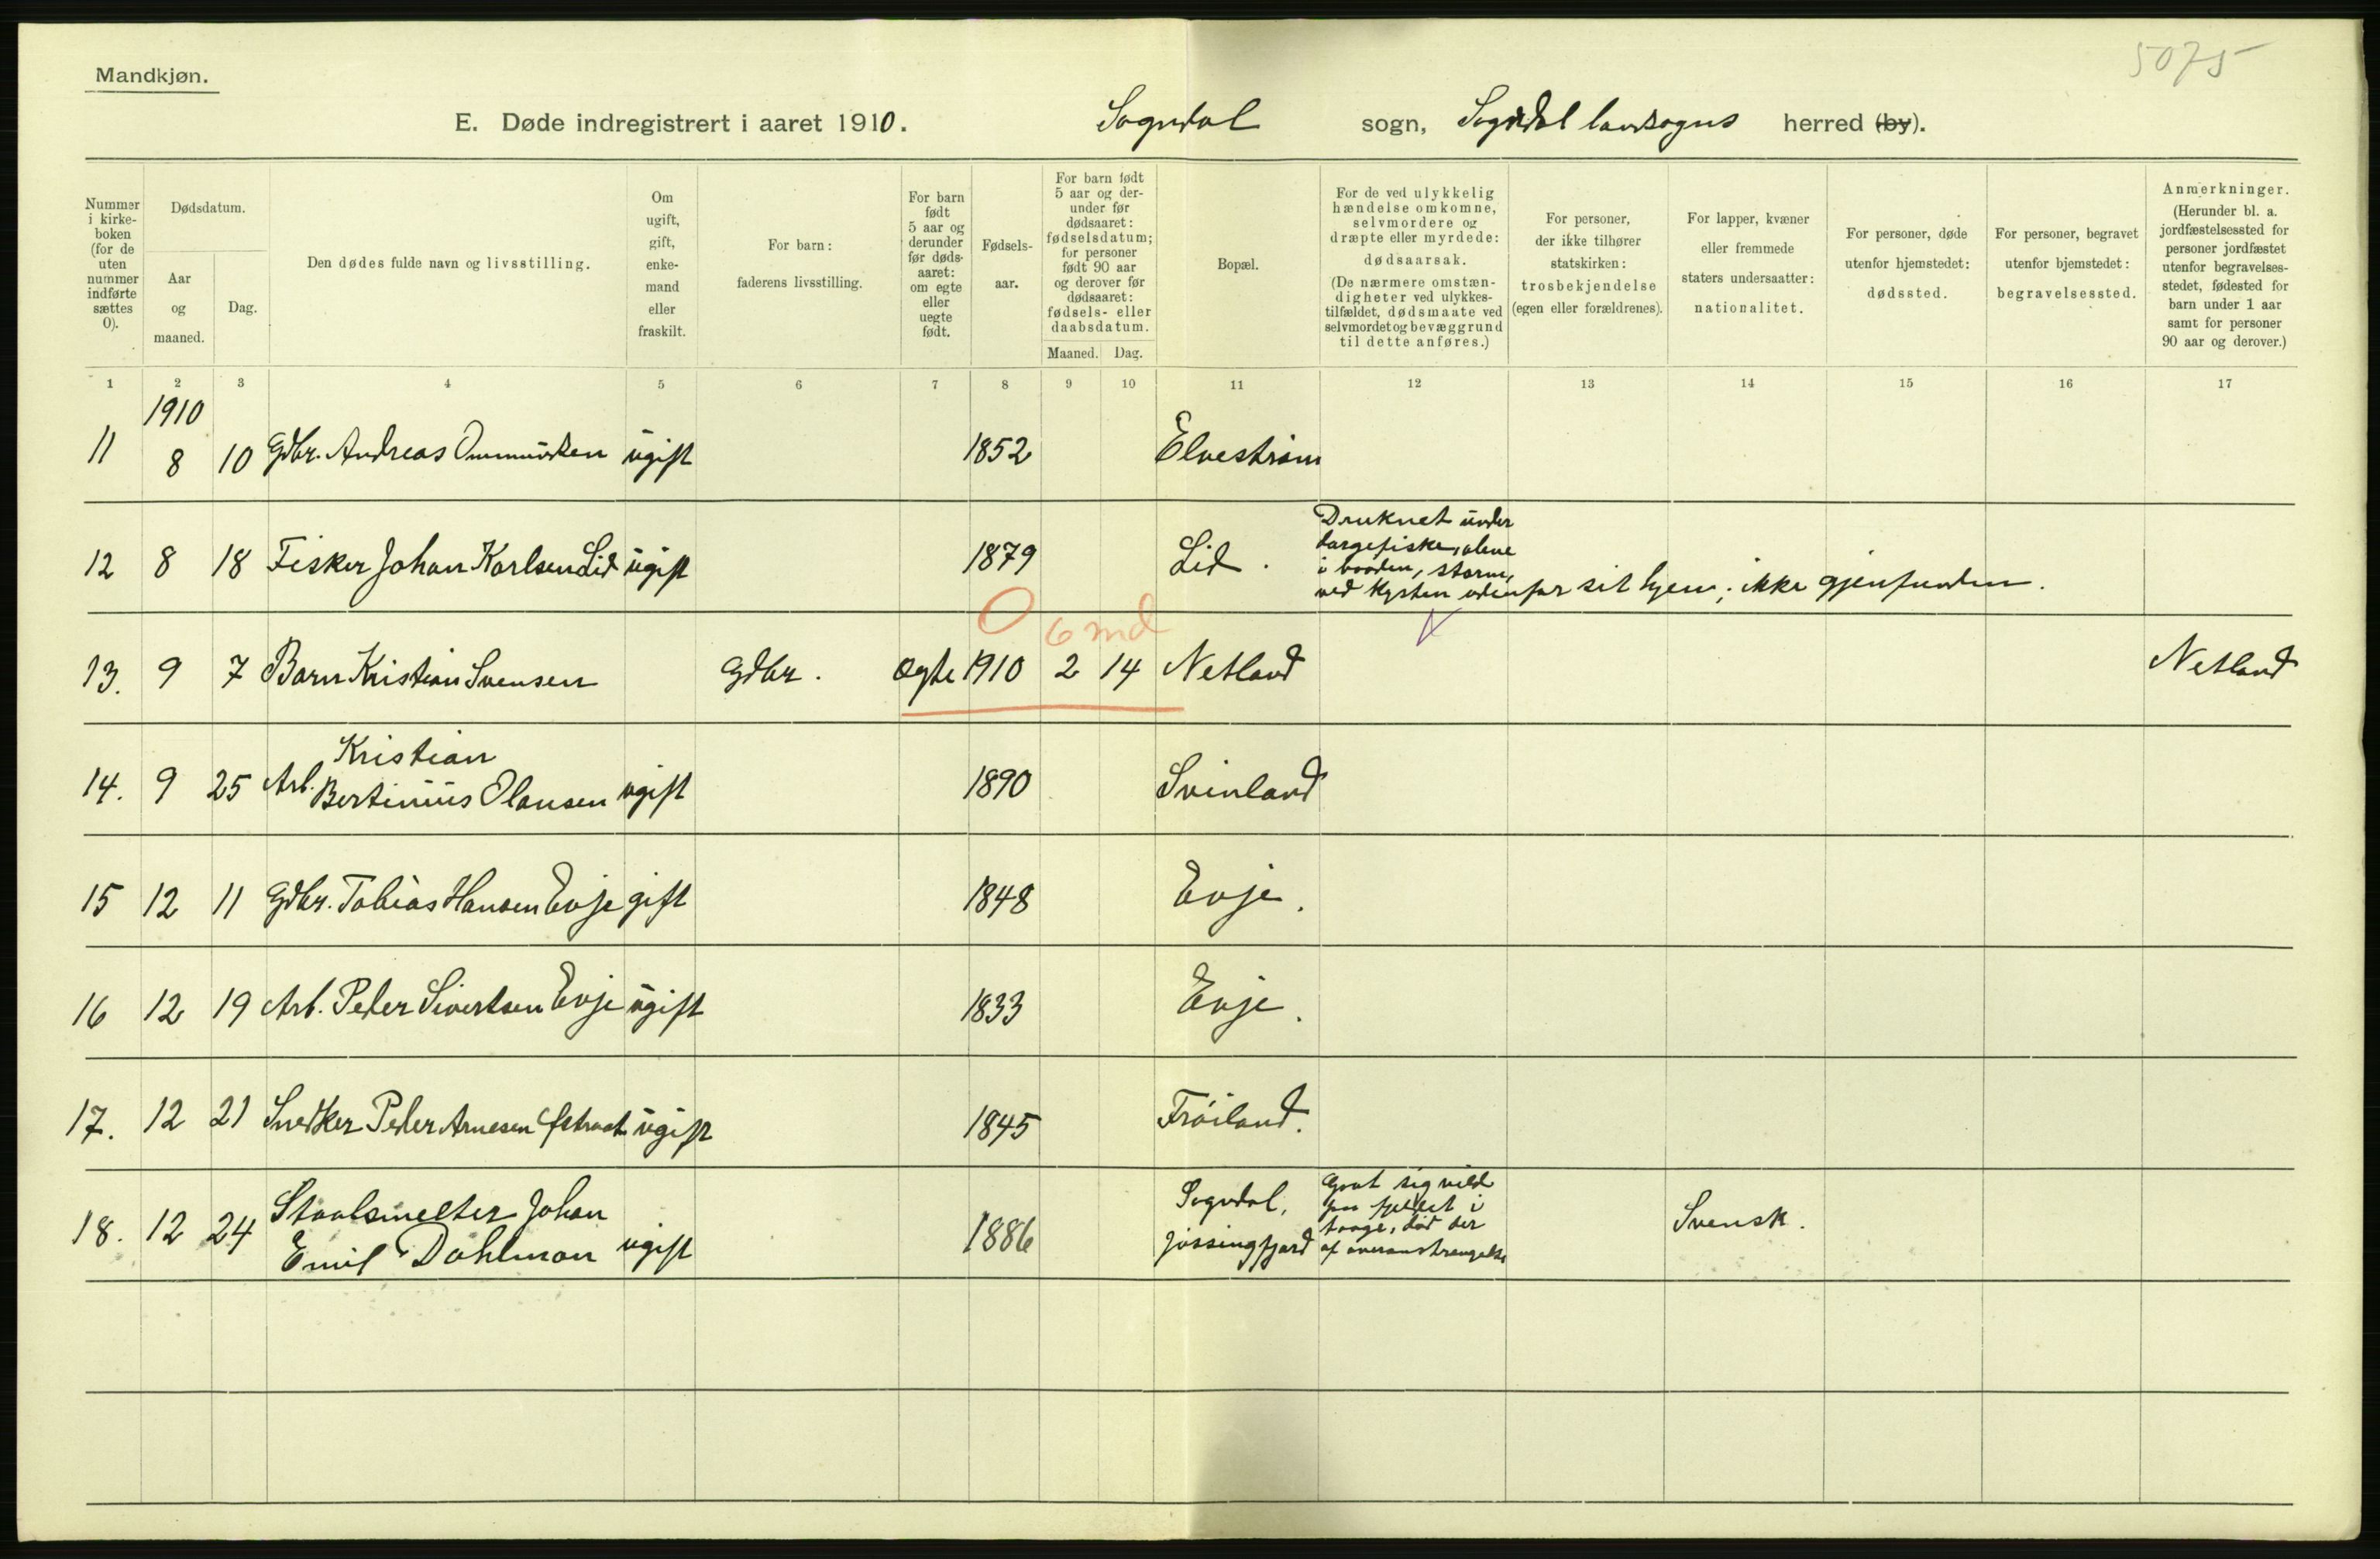 5075
Mandkjøn.
E. Døde indregistrert i aaret 1910. Sogndal sogn, Sogndal landsogns herred (by).
Nummer i kirke-boken (for de uten nummer indførte sættes 0).
Dødsdatum.
Aar og maaned.
Dag.
Den dødes fulde navn og livsstilling.
Om ugift, gift, enke-mand eller fraskilt.
For barn: faderens livsstilling.
For barn født 5 aar og derunder før døds-aaret: om egte eller uegte født.
Fødsels-aar.
For barn født 5 aar og der-under før dødsaaret: fødselsdatum; for personer født 90 aar og derover før dødsaaret: fødsels- eller daabsdatum.
Maaned. Dag.
Bopæl.
For de ved ulykkelig hændelse omkomne, selvmordere og dræpte eller myrdede: dødsaarsak.
(De nærmere omstæn-digheter ved ulykkes-tilfældet, dødsmaate ved selvmordet og bevæggrund til dette anføres.)
For personer, der ikke tilhører statskirken: trosbekjendelse (egen eller forældrenes).
For lapper, kvæner eller fremmede staters undersaatter: nationalitet.
For personer, døde utenfor hjemstedet: dødssted.
For personer, begravet utenfor hjemstedet: begravelsessted.
Anmerkninger.
(Herunder bl. a. jordfæstelsessted for personer jordfæstet utenfor begravelses-stedet, fødested for barn under 1 aar samt for personer 90 aar og derover.)
1 2 3 4 5 6 7 8 9 10 11 12 13 14 15 16 17
1910
11 8 10 Gdbr. Andreas Ommundsen ugift 1852 Elvestrøm
12 8 18 Fisker Johan Karlsen Lid ugift 1879 Lid.
Druknet under
dorgefiske, alene
i baaden, storm,
ved kysten udenfor sit hjem; ikke gjenfunden.
0 6 md
13. 9 7 Barn Kristian Svensen Gdbr. ægte 1910 2 14 Netland Netland
14. 9 25 Arb. Kristian
Bertinius Olausen ugift 1890 Svinland
15 12 11 Gdbr. Tobias Hansen Evje gift 1848 Evje.
16 12 19 Arb. Peder Sivertsen Evje ugift 1833 Evje.
17. 12 21 Snedker Peder Arnesen ugift 1845 Frøiland.
18. 12 24 Staalsmelter Johan
Emil Dahlman ugift 1886 Sogndal,
Jøssingfjord
Gaat sig vild
paa fjeldet i
taage, död der
af overanstrengelse
Svensk.